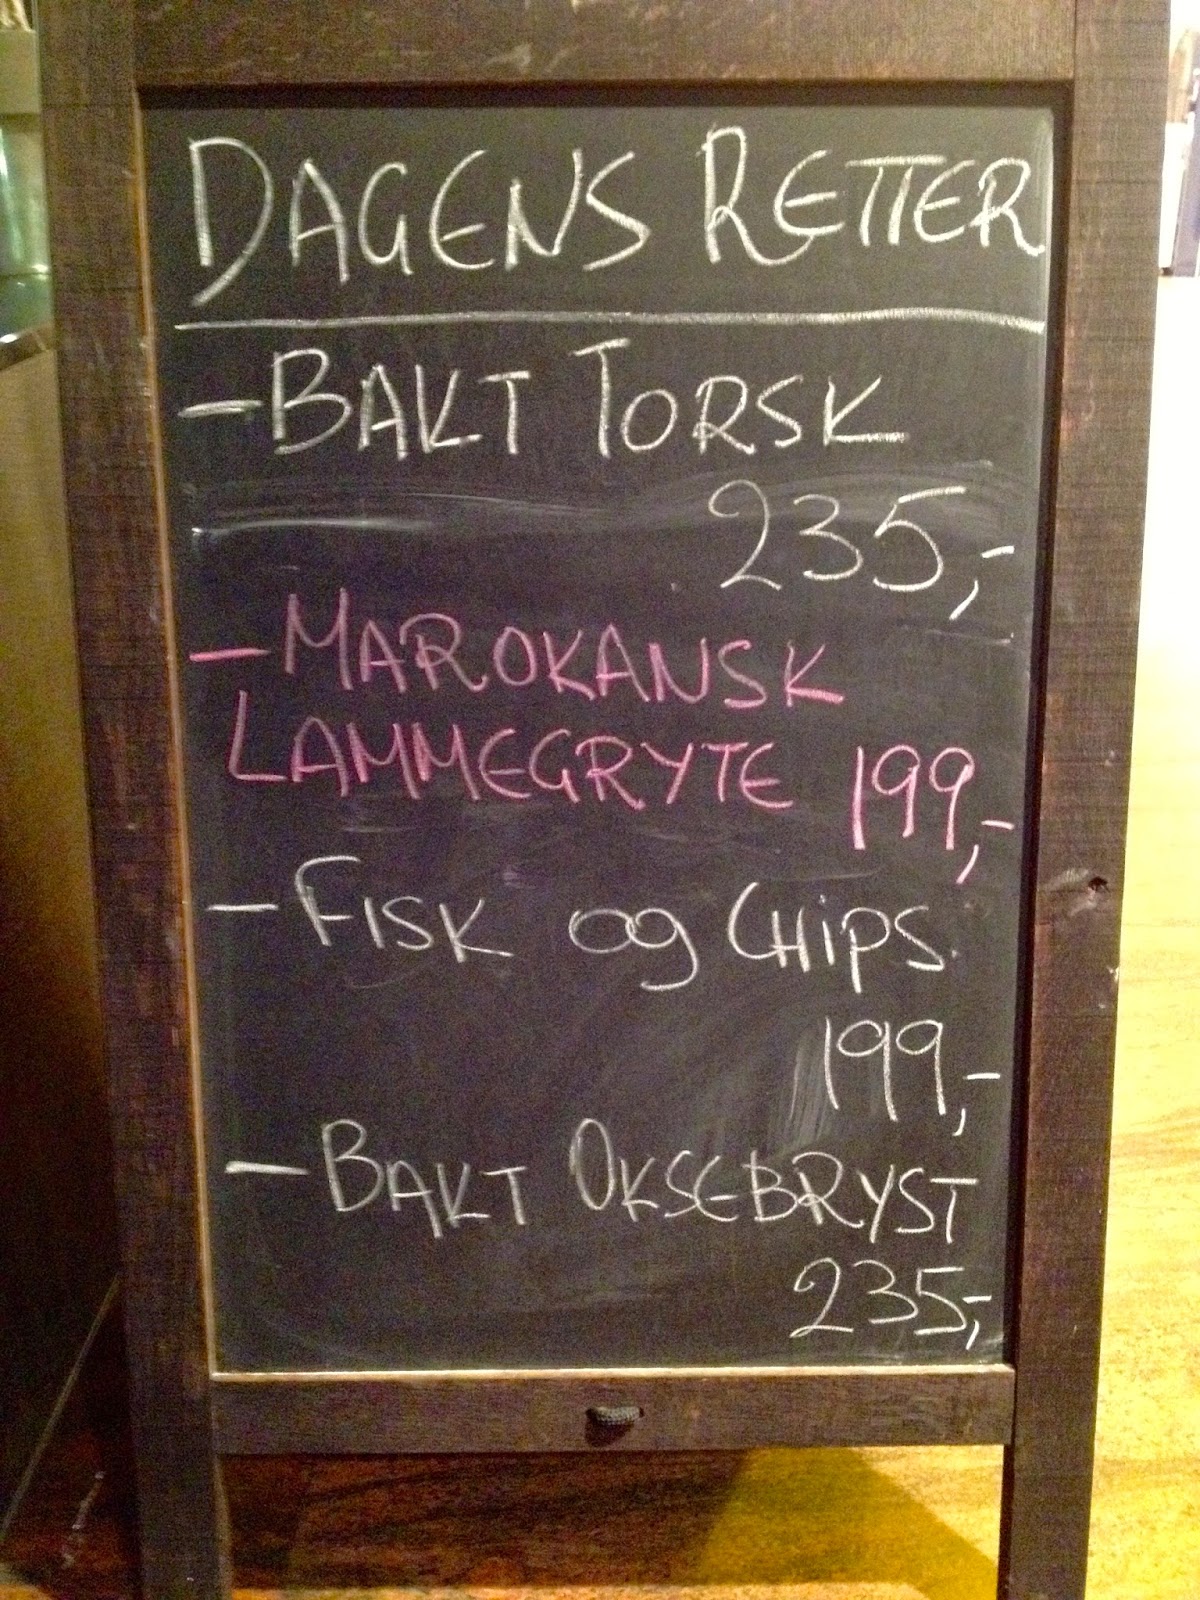 DAGENS RETTER
- BAKT TORSK
235,-
- MAROKANSK
LAMMEGRYTE 199,-
- FISK og CHiPS
199,-
- BAKT OKSEBRYST
235,-